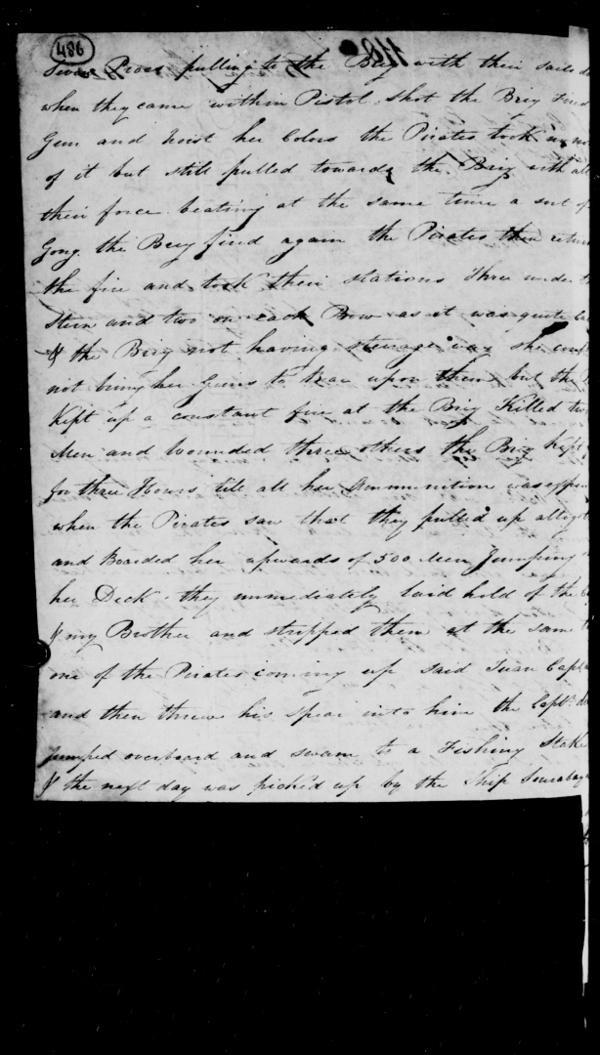 486
Seven Proas pulling to the Brig with their sails d
when they came within Pistol shot the Brig Fired
Gun and Hoist her Colors the Pirates took no no
of it but still pulled towards the Brig with all
their force beating at the same time a sort of
Gong. the Brig fired again the Pirates then return
the fire and took their stations Three under t
Stern and two on each Bow as it was quite
& the Brig not having steerage way she
not bring her Guns to bear upon them, but the
Kept up a constant fire at the Brig Killed two
Men and wounded three others the Brig kept
for three Hours till all her Ammunition was
when the Pirates saw that they pulled up
and Boarded her upwards of 500 Men Jumping
her Deck. they immediately laid hold of the
& my Brother and stripped them at the same t
one of the Pirates coming up said Tuan Capt
and then threw his spear into him the Captn.
jumped overboard and swam to a Fishing Stake
& the next day was pick'd up by the Ship Sourabay